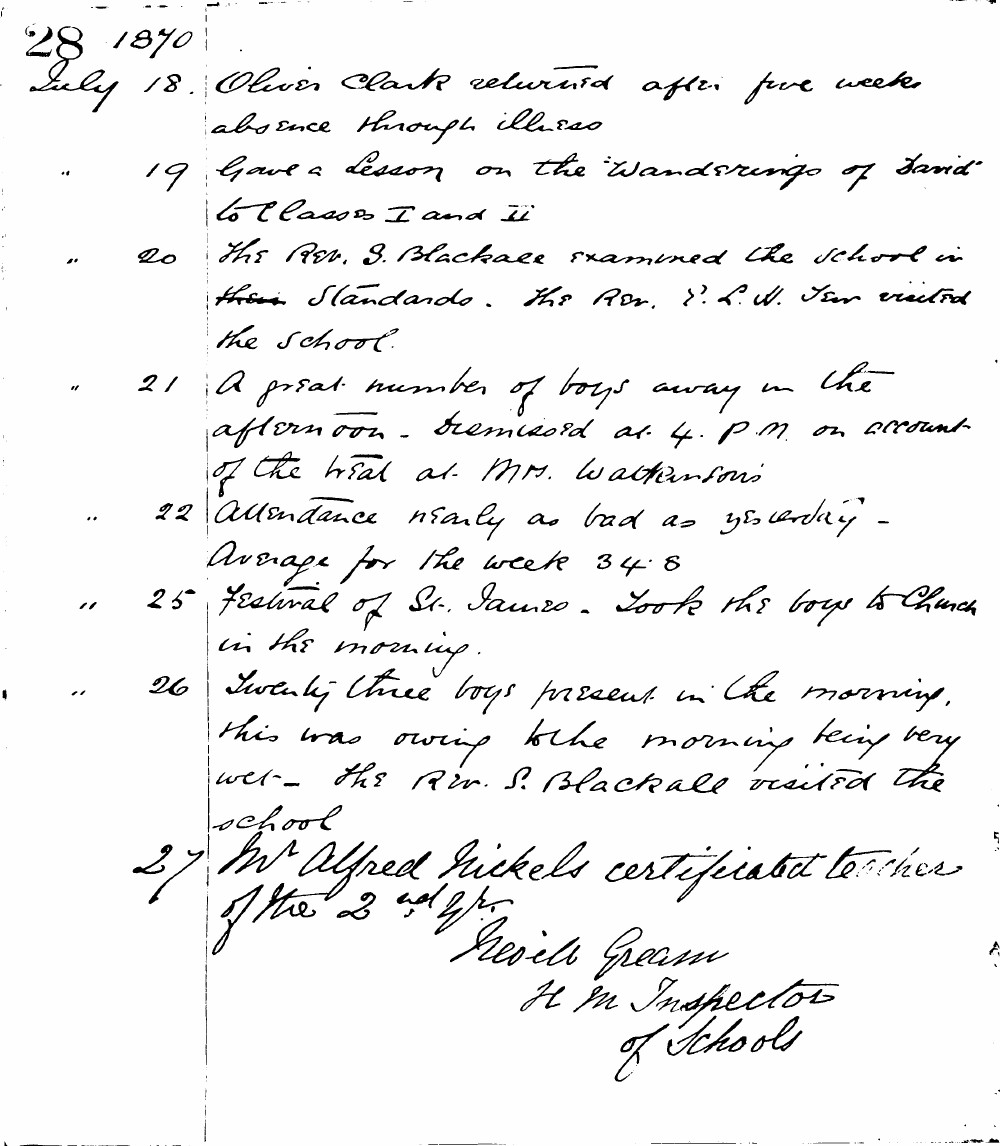 28 1870
July 18. Oliver Clark returned after five weeks
absence through illness
" 19 Gave a Lesson on the "Wanderings of David"
to Classes I and II
" 20 The Rev. S. Blackall examined the school in
their Standards. The Rev. E. L. H. Tew visited
the school.
" 21 A great number of boys away in the
afternoon - Dismissed at 4. P.M. on account
of the treat at Mrs. Watkinson's
" 22 Attendance nearly as bad as yesterday -
Average for the week 34.8
" 25 Festival of St. James - Took the boys to Church
in the morning.
" 26 Twenty three boys present in the morning,
this was owing to the morning being very
wet - The Rev. S. Blackall visited the
school
27 Mr Alfred Nickels certificated teacher
of the 2nd Gr.
Nevile Gream
H M Inspector
of Schools